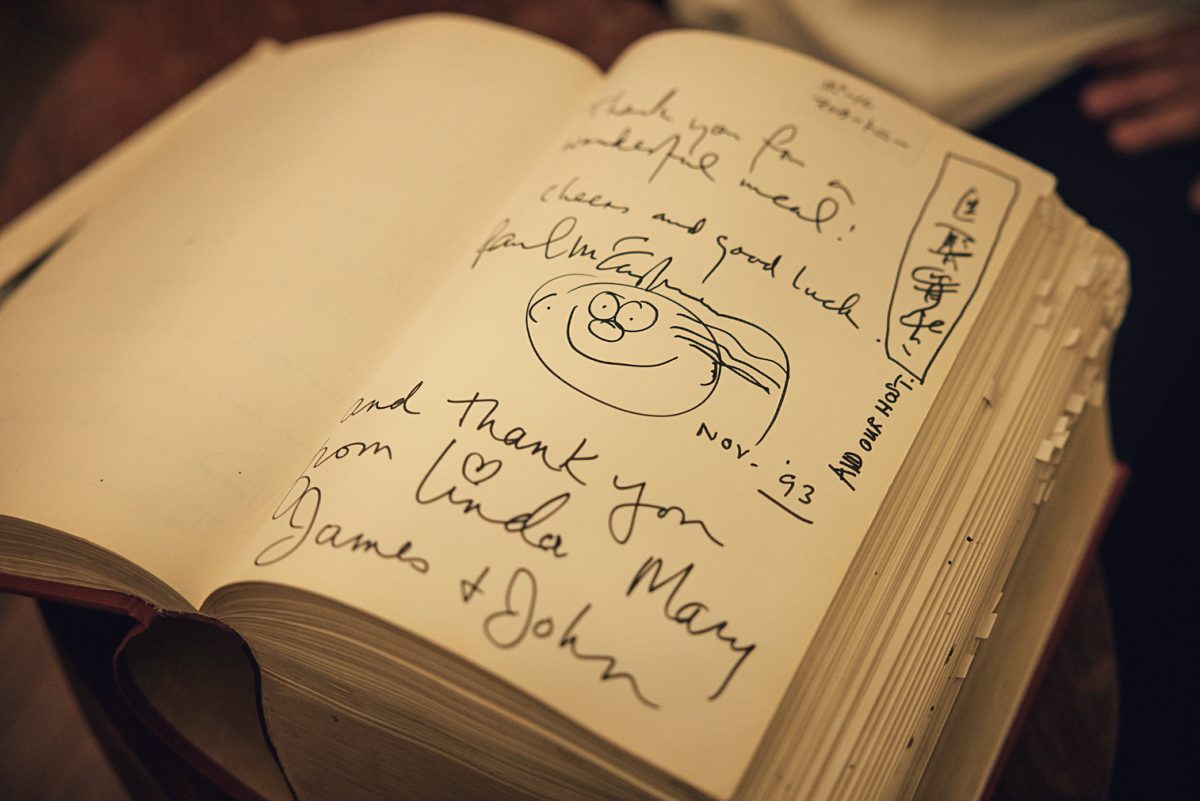 Thank you for a
wonderful meal!
cheers and good luck!
Paul McCartney
NOV- '93
AND OUR HOST!
and Thank you
from Linda Mary
James + John